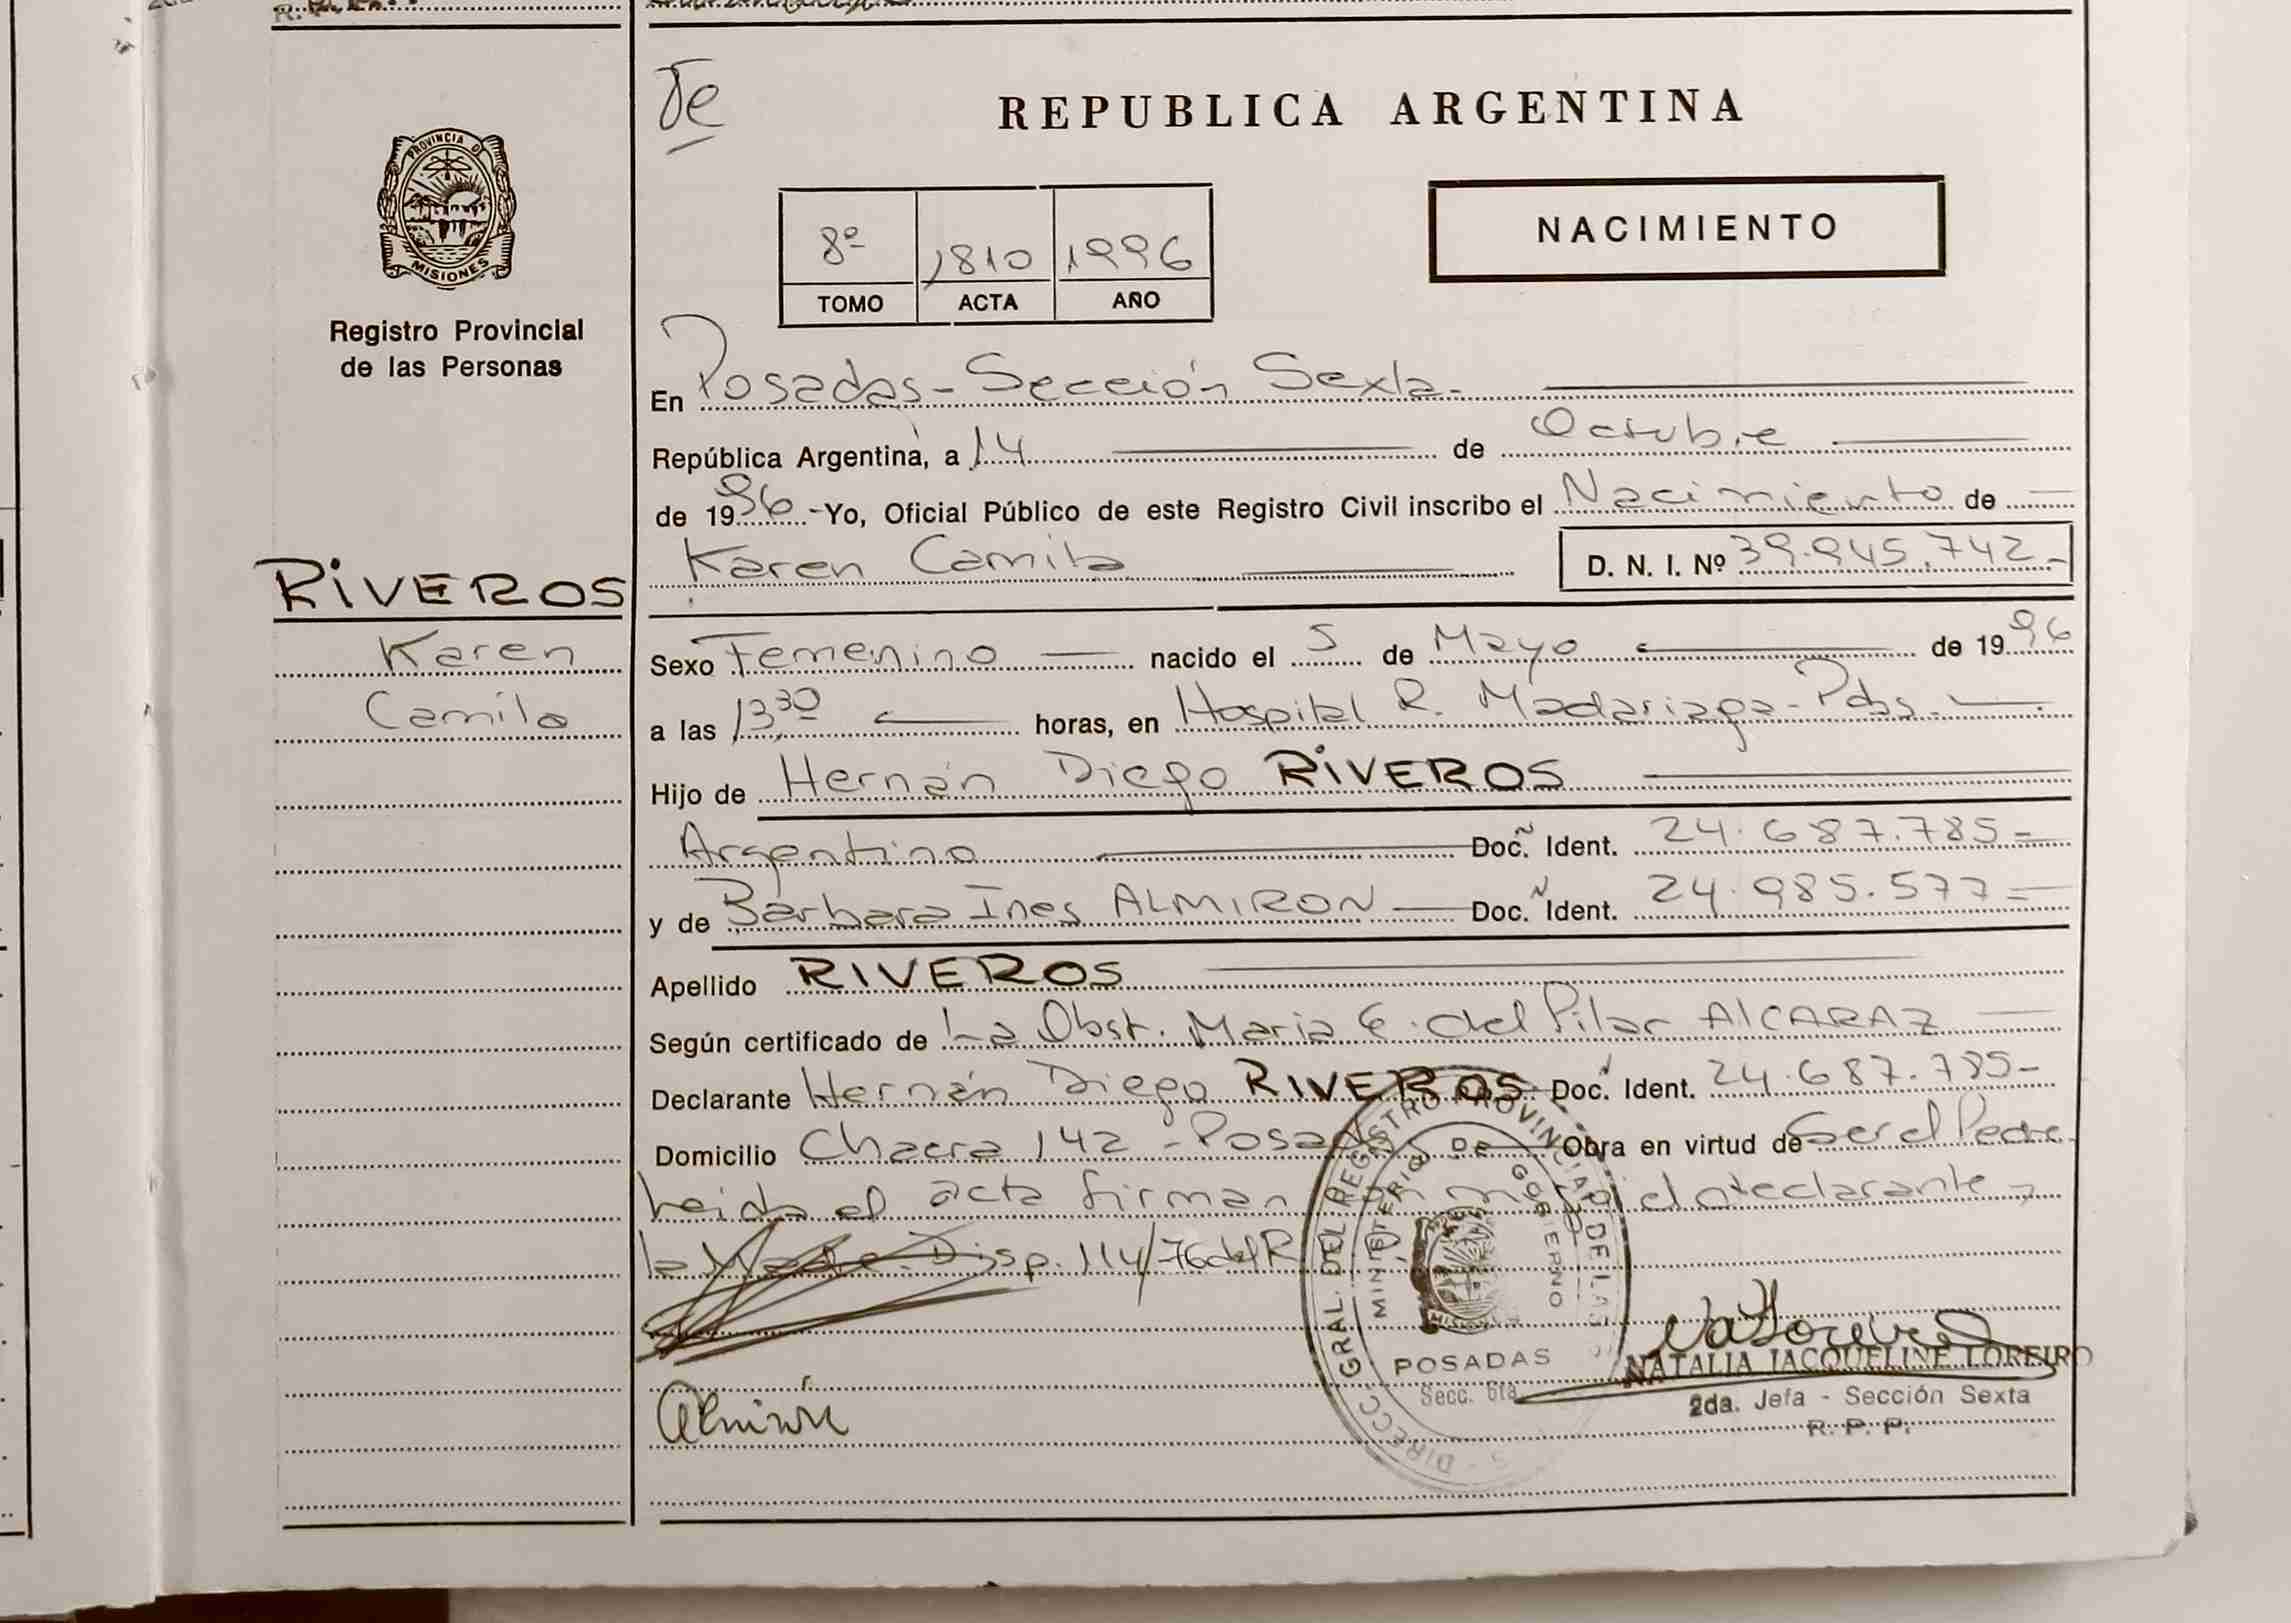 PROVINCIA D
MISIONES
Registro Provincial
de las Personas
RIVEROS
Karen
Camila
Te
REPUBLICA ARGENTINA
8º 1810 1996
TOMO ACTA AÑO
NACIMIENTO
En Posadas - Sección Sexta.
República Argentina, a 14 de Octubre
de 1996 - Yo, Oficial Público de este Registro Civil inscribo el Nacimiento de
Karen Camila D. N. I. Nº 39.945.742-
Sexo Femenino nacido el 5 de Mayo de 1996
a las 13,30 horas, en Hospital R. Madariaga - Pdas.
Hijo de Hernán Diego RIVEROS
Argentino Doc. Ident. 24.687.785=
y de Bárbara Ines ALMIRON Doc. Ident. 24.985.577=
Apellido RIVEROS
Según certificado de La Obst. Maria E. del Pilar AlCARAZ
Declarante Hernán Diego RIVEROS Doc. Ident. 24.687.785-
Domicilio Chacra 142 - Posadas Obra en virtud de Ser el Padre.
Leida el acta firman el declarante y
la Madre. Disp. 114/76 del R.
Almirón
DIRECC. GRAL. DEL REGISTRO PROVINCIAL DE LAS
MINISTERIO DE GOBIERNO
POSADAS
Secc. 6ta
NATALIA JACQUELINE LOREIRO
2da. Jefa - Sección Sexta
R. P. P.